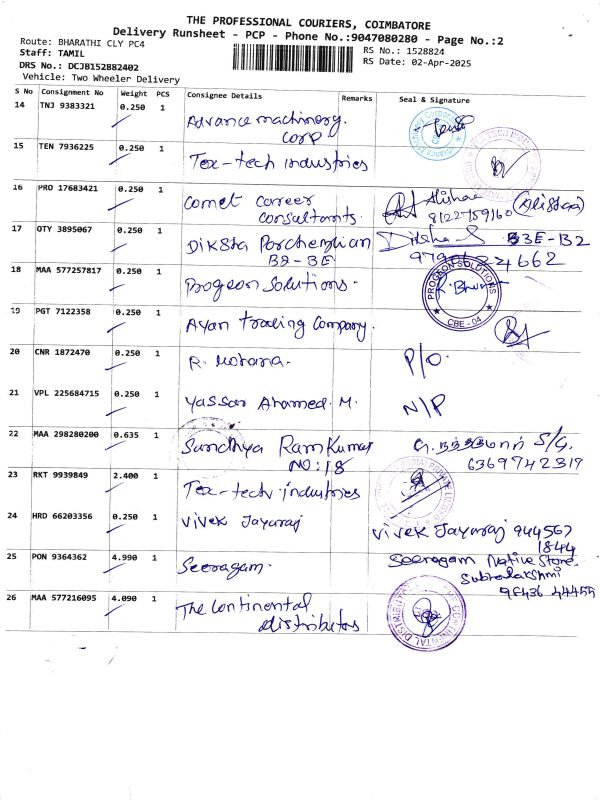 THE PROFESSIONAL COURIERS, COIMBATORE
Delivery Runsheet - PCP - Phone No.:9047080280 - Page No.:2
Route: BHARATHI CLY PC4
RS No.: 1528824
Staff: TAMIL
RS Date: 02-Apr-2025
DRS No.: DCJB152882402
Vehicle: Two Wheeler Delivery
S No Consignment No Weight PCS Consignee Details Remarks Seal & Signature
14 TNJ 9383321 0.250 1 Advance machinery
corp
15 TEN 7936225 0.250 1 Tex-tech industries
16 PRO 17683421 0.250 1 comet career
consultants
8122759160
17 QTY 3895067 0.250 1 Diksta Porchezhian B3E-B2
B2-BE
18 MAA 577257817 0.250 1 Progeon Solutions.
PROGEON SOLUTIONS
CBE - 04
19 PGT 7122358 0.250 1 Ayan trading company.
20 CNR 1872470 0.250 1 R. Mohana. P/O.
21 VPL 225684715 0.250 1 Yassar Ahamed. M. N/P
22 MAA 298280200 0.635 1 Sandhya Ramkumar
NO:18
6369742319
23 RKT 9939849 2.400 1 Tex-tech industries
24 HRD 66203356 0.250 1 Vivek Jayaraj Vivek Jayaraj 944567
1844
25 PON 9364362 4.990 1 Seeragam. Seeragam Native Store.
Subbulakshmi
98436 44455
26 MAA 577216095 4.090 1 The Continental
distributors